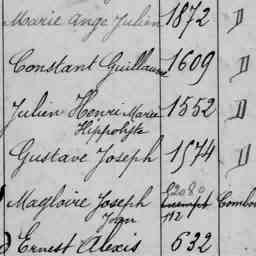 Marie Ange Julien 1872 D
Constant Guillaume 1609 D
Julien Henri Marie 1552 D
Hippolyte
Gustave Joseph 1574 D
Magloire Joseph Exempt
Jean 112
Ernest Alexis 632